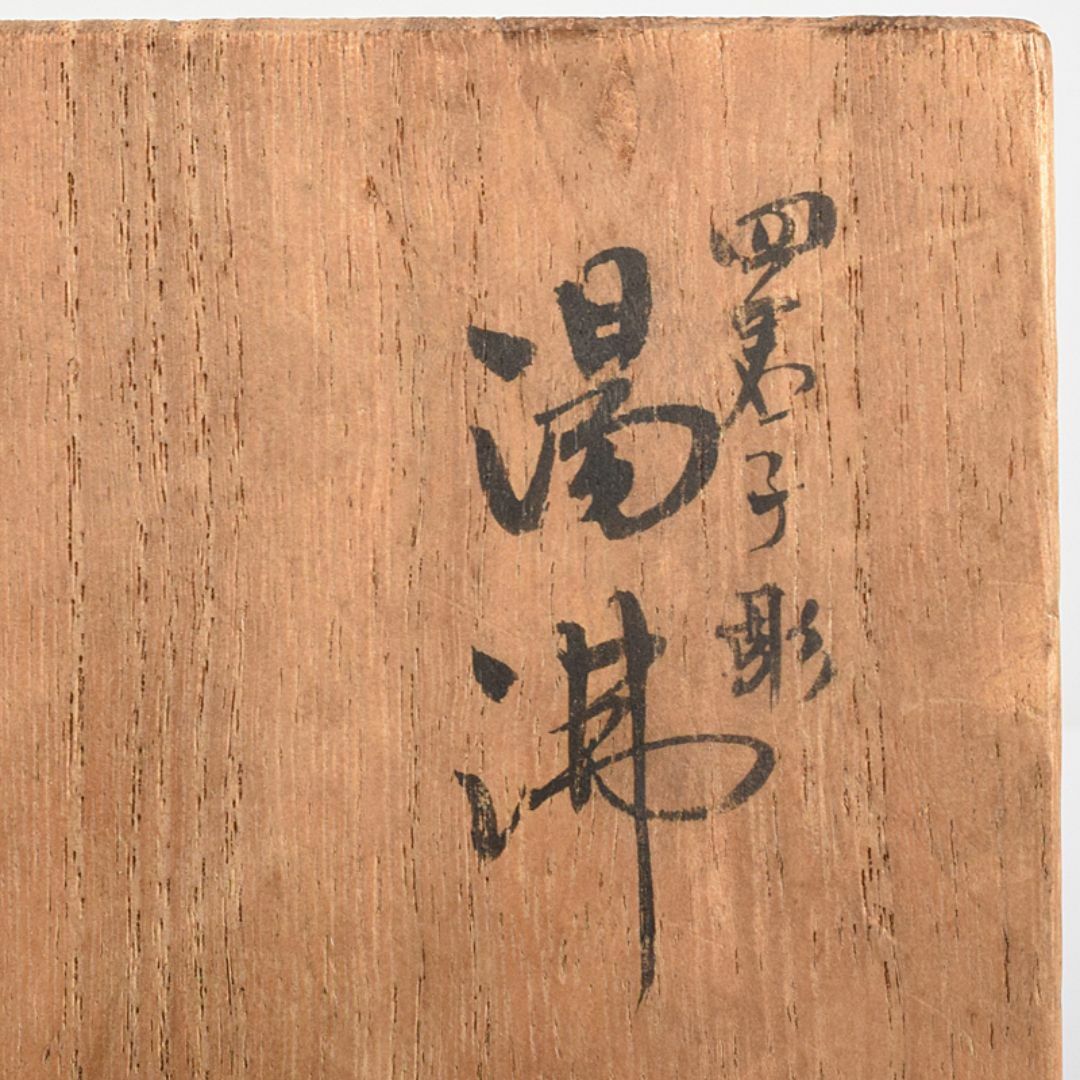 四君子彫
湯沸